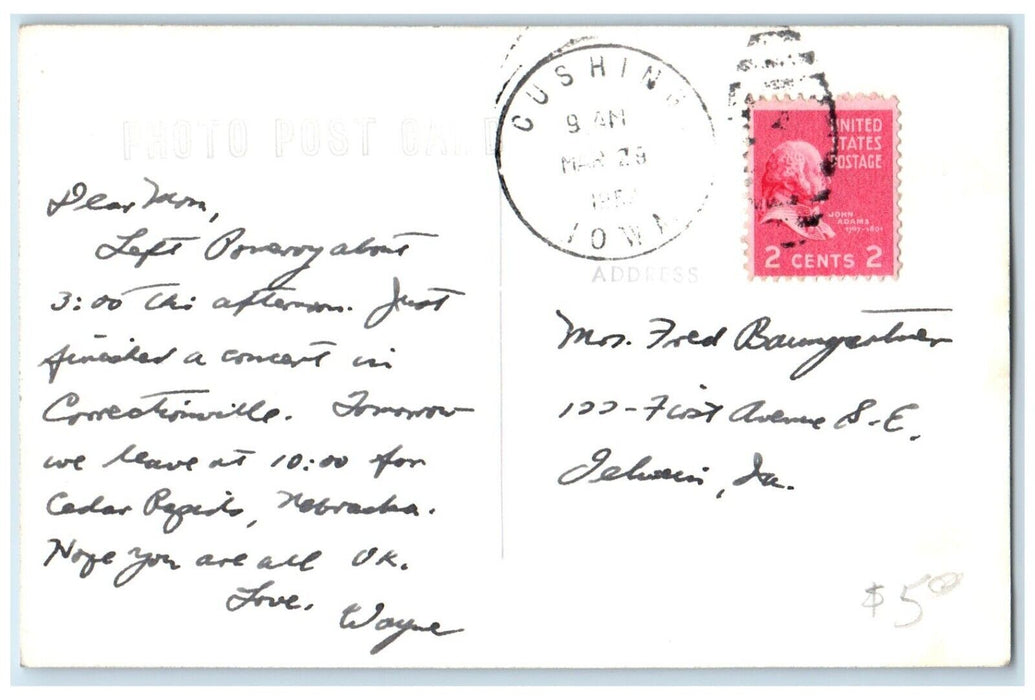 PHOTO POST CARD
Dear Mom,
Left Pomeroy about
3:00 this afternoon. Just
finished a concert in
Correctionville. Tomorrow
we leave at 10:00 for
Cedar Rapids, Nebraska.
Hope you are all OK.
Love,
Wayne
CUSHING
9 AM
MAR 29
IOWA
UNITED
STATES
POSTAGE
JOHN
ADAMS
1797-1801
2 CENTS 2
ADDRESS
Mrs. Fred Baumgartner
122-First Avenue S.E.
Oelwein, Ia.
$5.00